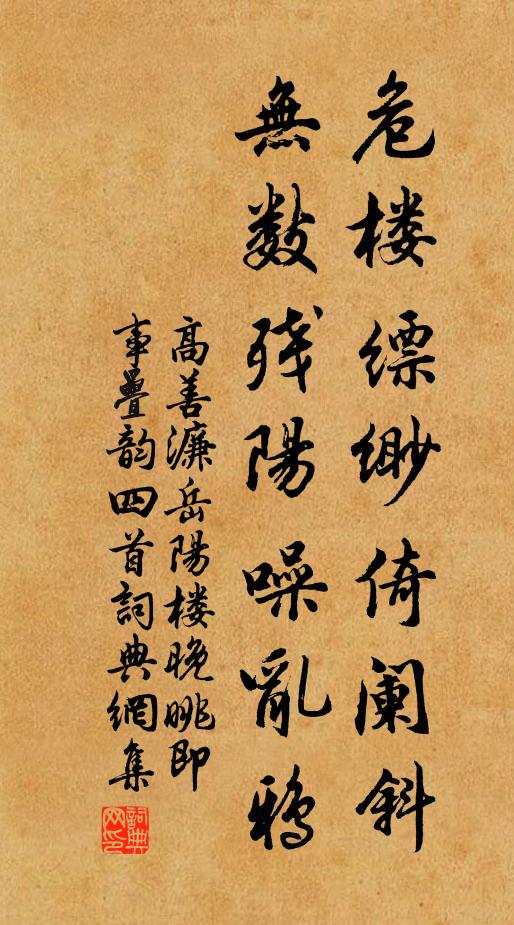 危楼缥缈倚阑斜
無数残陽噪亂鴉
高善濂岳陽楼晚眺即
事疊韵四首詞典網集
詞典网印